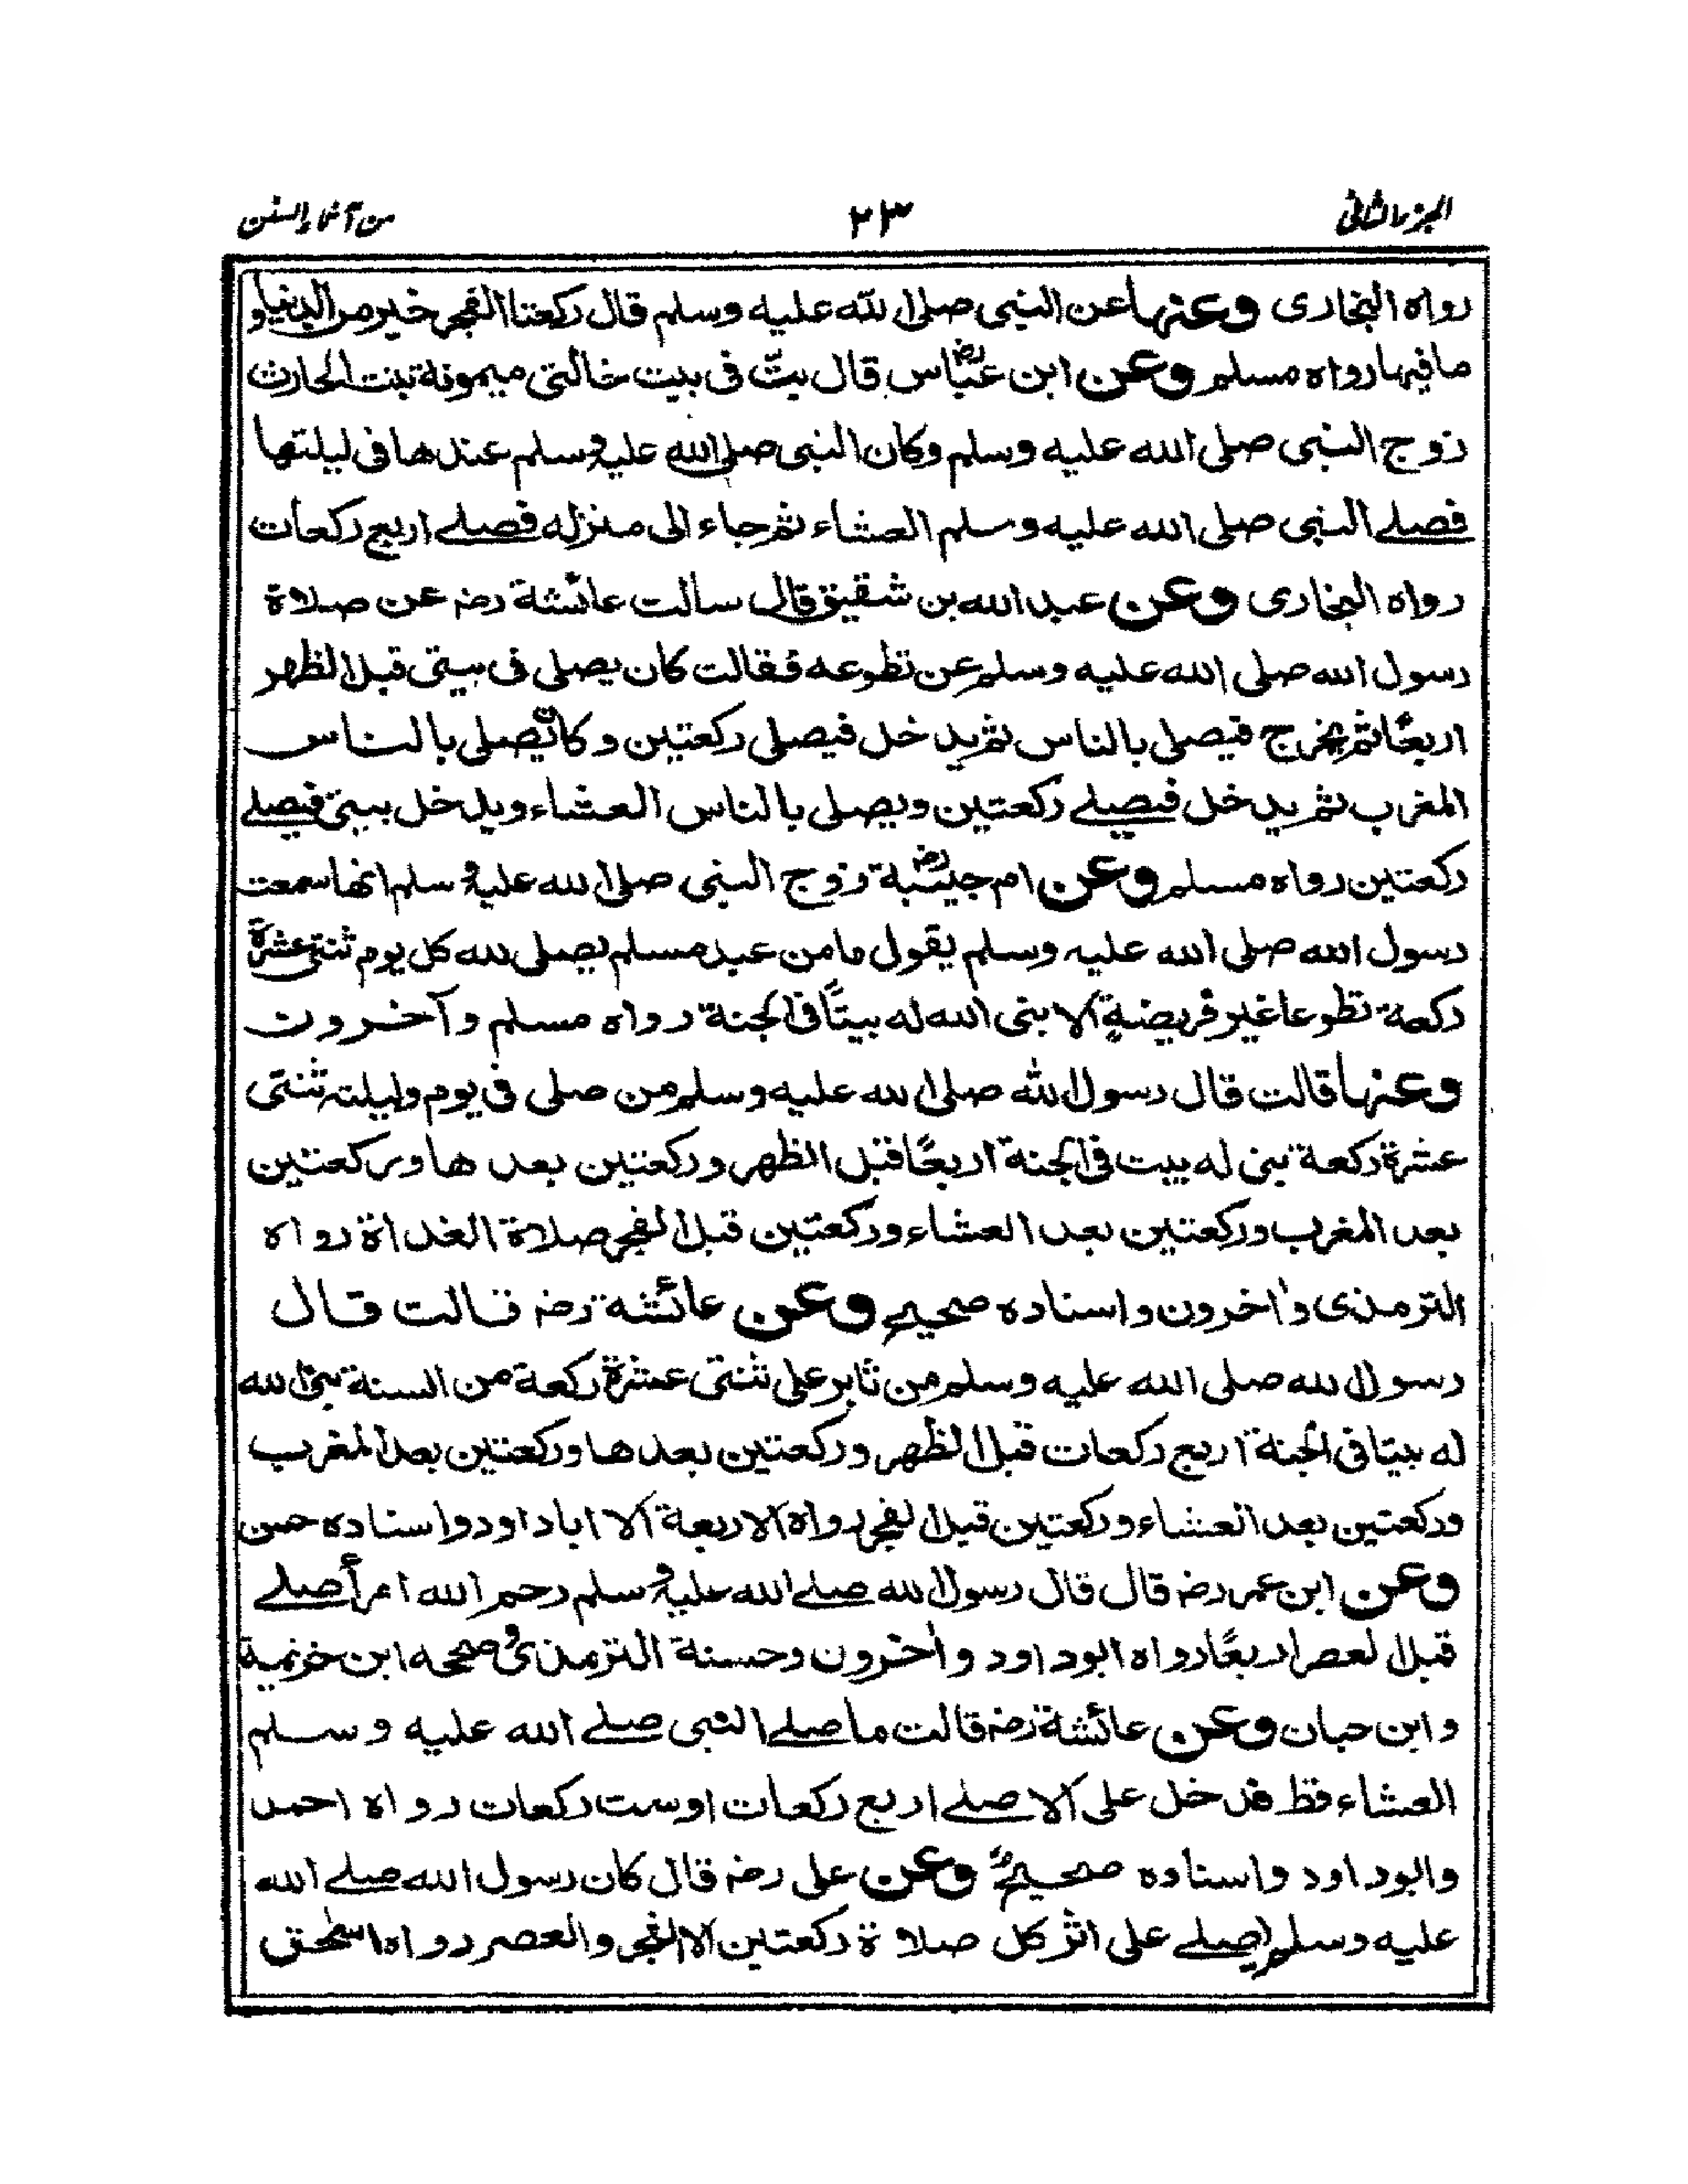 الجزء الثانی ٢٣ من آثار السنن
رواه البخاری وعنها عن النبی صلی الله علیه وسلم قال رکعتا الفجر خیر من الدنیا و
ما فیها رواه مسلم وعن ابن عباس رضـ قال بتّ فی بیت خالتی میمونة بنت الحارث
زوج النبی صلی الله علیه وسلم وکان النبی صلی الله علیه وسلم عندها فی لیلتها
فصلے النبی صلی الله علیه وسلم العشاء ثم جاء الی منزله فصلے اربع رکعات
رواه البخاری وعن عبد الله بن شقیق قال سالت عائشة رضـ عن صلاة
رسول الله صلی الله علیه وسلم عن تطوعه فقالت کان یصلی فی بیتی قبل الظهر
اربعًا ثم یخرج فیصلی بالناس ثم یدخل فیصلی رکعتین وکان یصلی بالناس
المغرب ثم یدخل فیصلے رکعتین ویصلی بالناس العشاء ویدخل بیتی فیصلے
رکعتین رواه مسلم وعن ام حبیبة رضـ زوج النبی صلی الله علیه وسلم انها سمعت
رسول الله صلی الله علیه وسلم یقول ما من عبد مسلم یصلی لله کل یوم ثنتی عشرة
رکعة تطوعا غیر فریضةٍ الا بنی الله له بیتًا فی الجنة رواه مسلم وآخرون
وعنها قالت قال رسول الله صلی الله علیه وسلم من صلی فی یوم ولیلته ثنتی
عشرة رکعة بنی له بیت فی الجنة اربعًا قبل الظهر ورکعتین بعدها ورکعتین
بعد المغرب ورکعتین بعد العشاء ورکعتین قبل الفجر صلاة الغداة رواه
الترمذی وآخرون واسناده صحیح وعن عائشة رضـ قالت قال
رسول الله صلی الله علیه وسلم من ثابر علی ثنتی عشرة رکعة من السنة بنی الله
له بیتا فی الجنة اربع رکعات قبل الظهر ورکعتین بعدها ورکعتین بعد المغرب
ورکعتین بعد العشاء ورکعتین قبل الفجر رواه الاربعة الا ابا داود واسناده حسن
وعن ابن عمر رضـ قال قال رسول الله صلے الله علیه وسلم رحم الله امرأ صلے
قبل العصر اربعًا رواه ابو داود وآخرون وحسنة الترمذی وصححه ابن خزیمة
وابن حبان وعن عائشة رضـ قالت ما صلے النبی صلے الله علیه وسلم
العشاء قط فدخل علی الا صلے اربع رکعات او ست رکعات رواه احمد
وابو داود واسناده صحیح وعن علی رضـ قال کان رسول الله صلے الله
علیه وسلم یصلے علی اثر کل صلاة رکعتین الا الفجر والعصر رواه اسحٰق